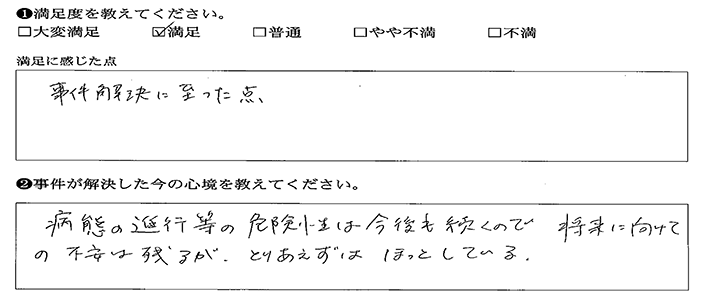 ❶満足度を教えてください。
□大変満足 ☑満足 □普通 □やや不満 □不満
満足に感じた点
事件解決に至った点、
❷事件が解決した今の心境を教えてください。
病態の進行等の危険性は今後も続くので 将来に向けて
の不安は残るが、とりあえずは ほっとしている.